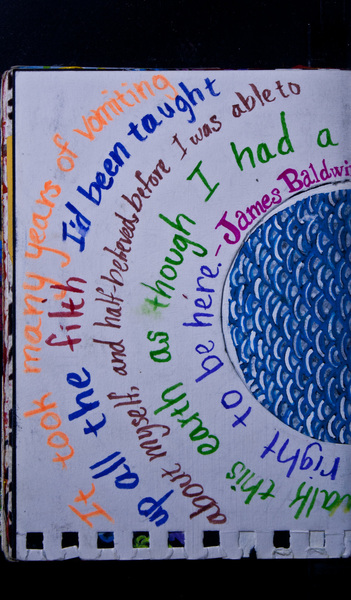 It took many years of vomiting
up all the filth I'd been taught
about myself, and half-believed, before I was able to
walk this earth as though I had a
right to be here. - James Baldwin